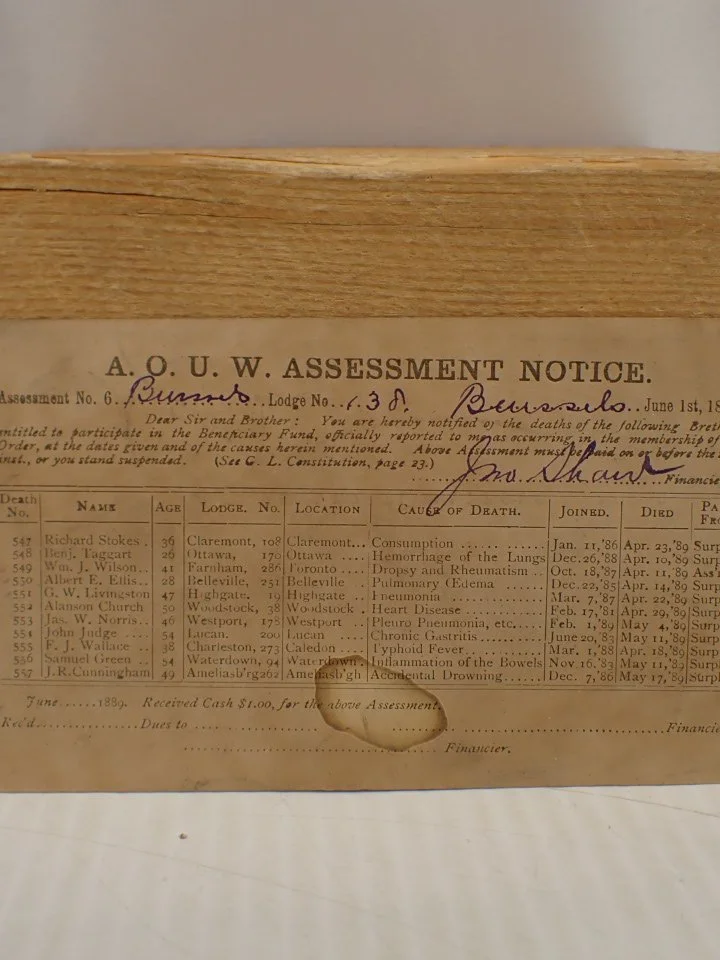 A. O. U. W. ASSESSMENT NOTICE.
Assessment No. 6. Brussels Lodge No. 138. Brussels June 1st, 18
Dear Sir and Brother: You are hereby notified of the deaths of the following Breth
entitled to participate in the Beneficiary Fund, officially reported to me as occurring in the membership of
Order, at the dates given and of the causes herein mentioned. Above Assessment must be paid on or before the
inst., or you stand suspended. (See G. L. Constitution, page 23.)
Jno Financie
Death No. NAME AGE LODGE. No. LOCATION CAUSE OF DEATH. JOINED. DIED PA FRO
547 Richard Stokes . 36 Claremont, 108 Claremont... Consumption ........ Jan. 11,'86 Apr. 23,'89 Surp
548 Benj. Taggart 26 Ottawa, 170 Ottawa .... Hemorrhage of the Lungs Dec. 26,'88 Apr. 10,'89 Surp
549 Wm. J. Wilson.. 41 Farnham, 286 Toronto .... Dropsy and Rheumatism .. Oct. 18,'87 Apr. 11,'89 Ass'
550 Albert E. Ellis.. 28 Belleville, 251 Belleville Pulmonary Œdema . Dec. 22,'85 Apr. 14,'89 Surp
551 G. W. Livingston 47 Highgate. 19 Highgate .. Pneumonia ....... Mar. 7,'87 Apr. 22,'89 Surp
552 Alanson Church 50 Woodstock, 38 Woodstock . Heart Disease ........ Feb. 17,'81 Apr. 29,'89 Surp
553 Jas. W. Norris.. 46 Westport, 178 Westport .. Pleuro Pneumonia, etc.... Feb. 1,'89 May 4,'89 Surp
554 John Judge .... 54 Lucan. 200 Lucan .... Chronic Gastritis....... June 20, 83 May 11,'89 Surpl
555 F. J. Wallace .. 38 Charleston, 273 Caledon .. Typhoid Fever........ Mar. 1,'88 Apr. 18,'89 Surpl
556 Samuel Green .. 54 Waterdown, 94 Waterdown. Inflammation of the Bowels Nov. 16.'83 May 11,'89 Surpl
557 J.R.Cunningham 49 Ameliasb'rg 262 Ameliasb'gh Accidental Drowning...... Dec. 7,'86 May 17,'89 Surpl
June ......1889. Received Cash $1.00, for the above Assessment.
Rec'd.......Dues to ........ Financie
........ Financier.